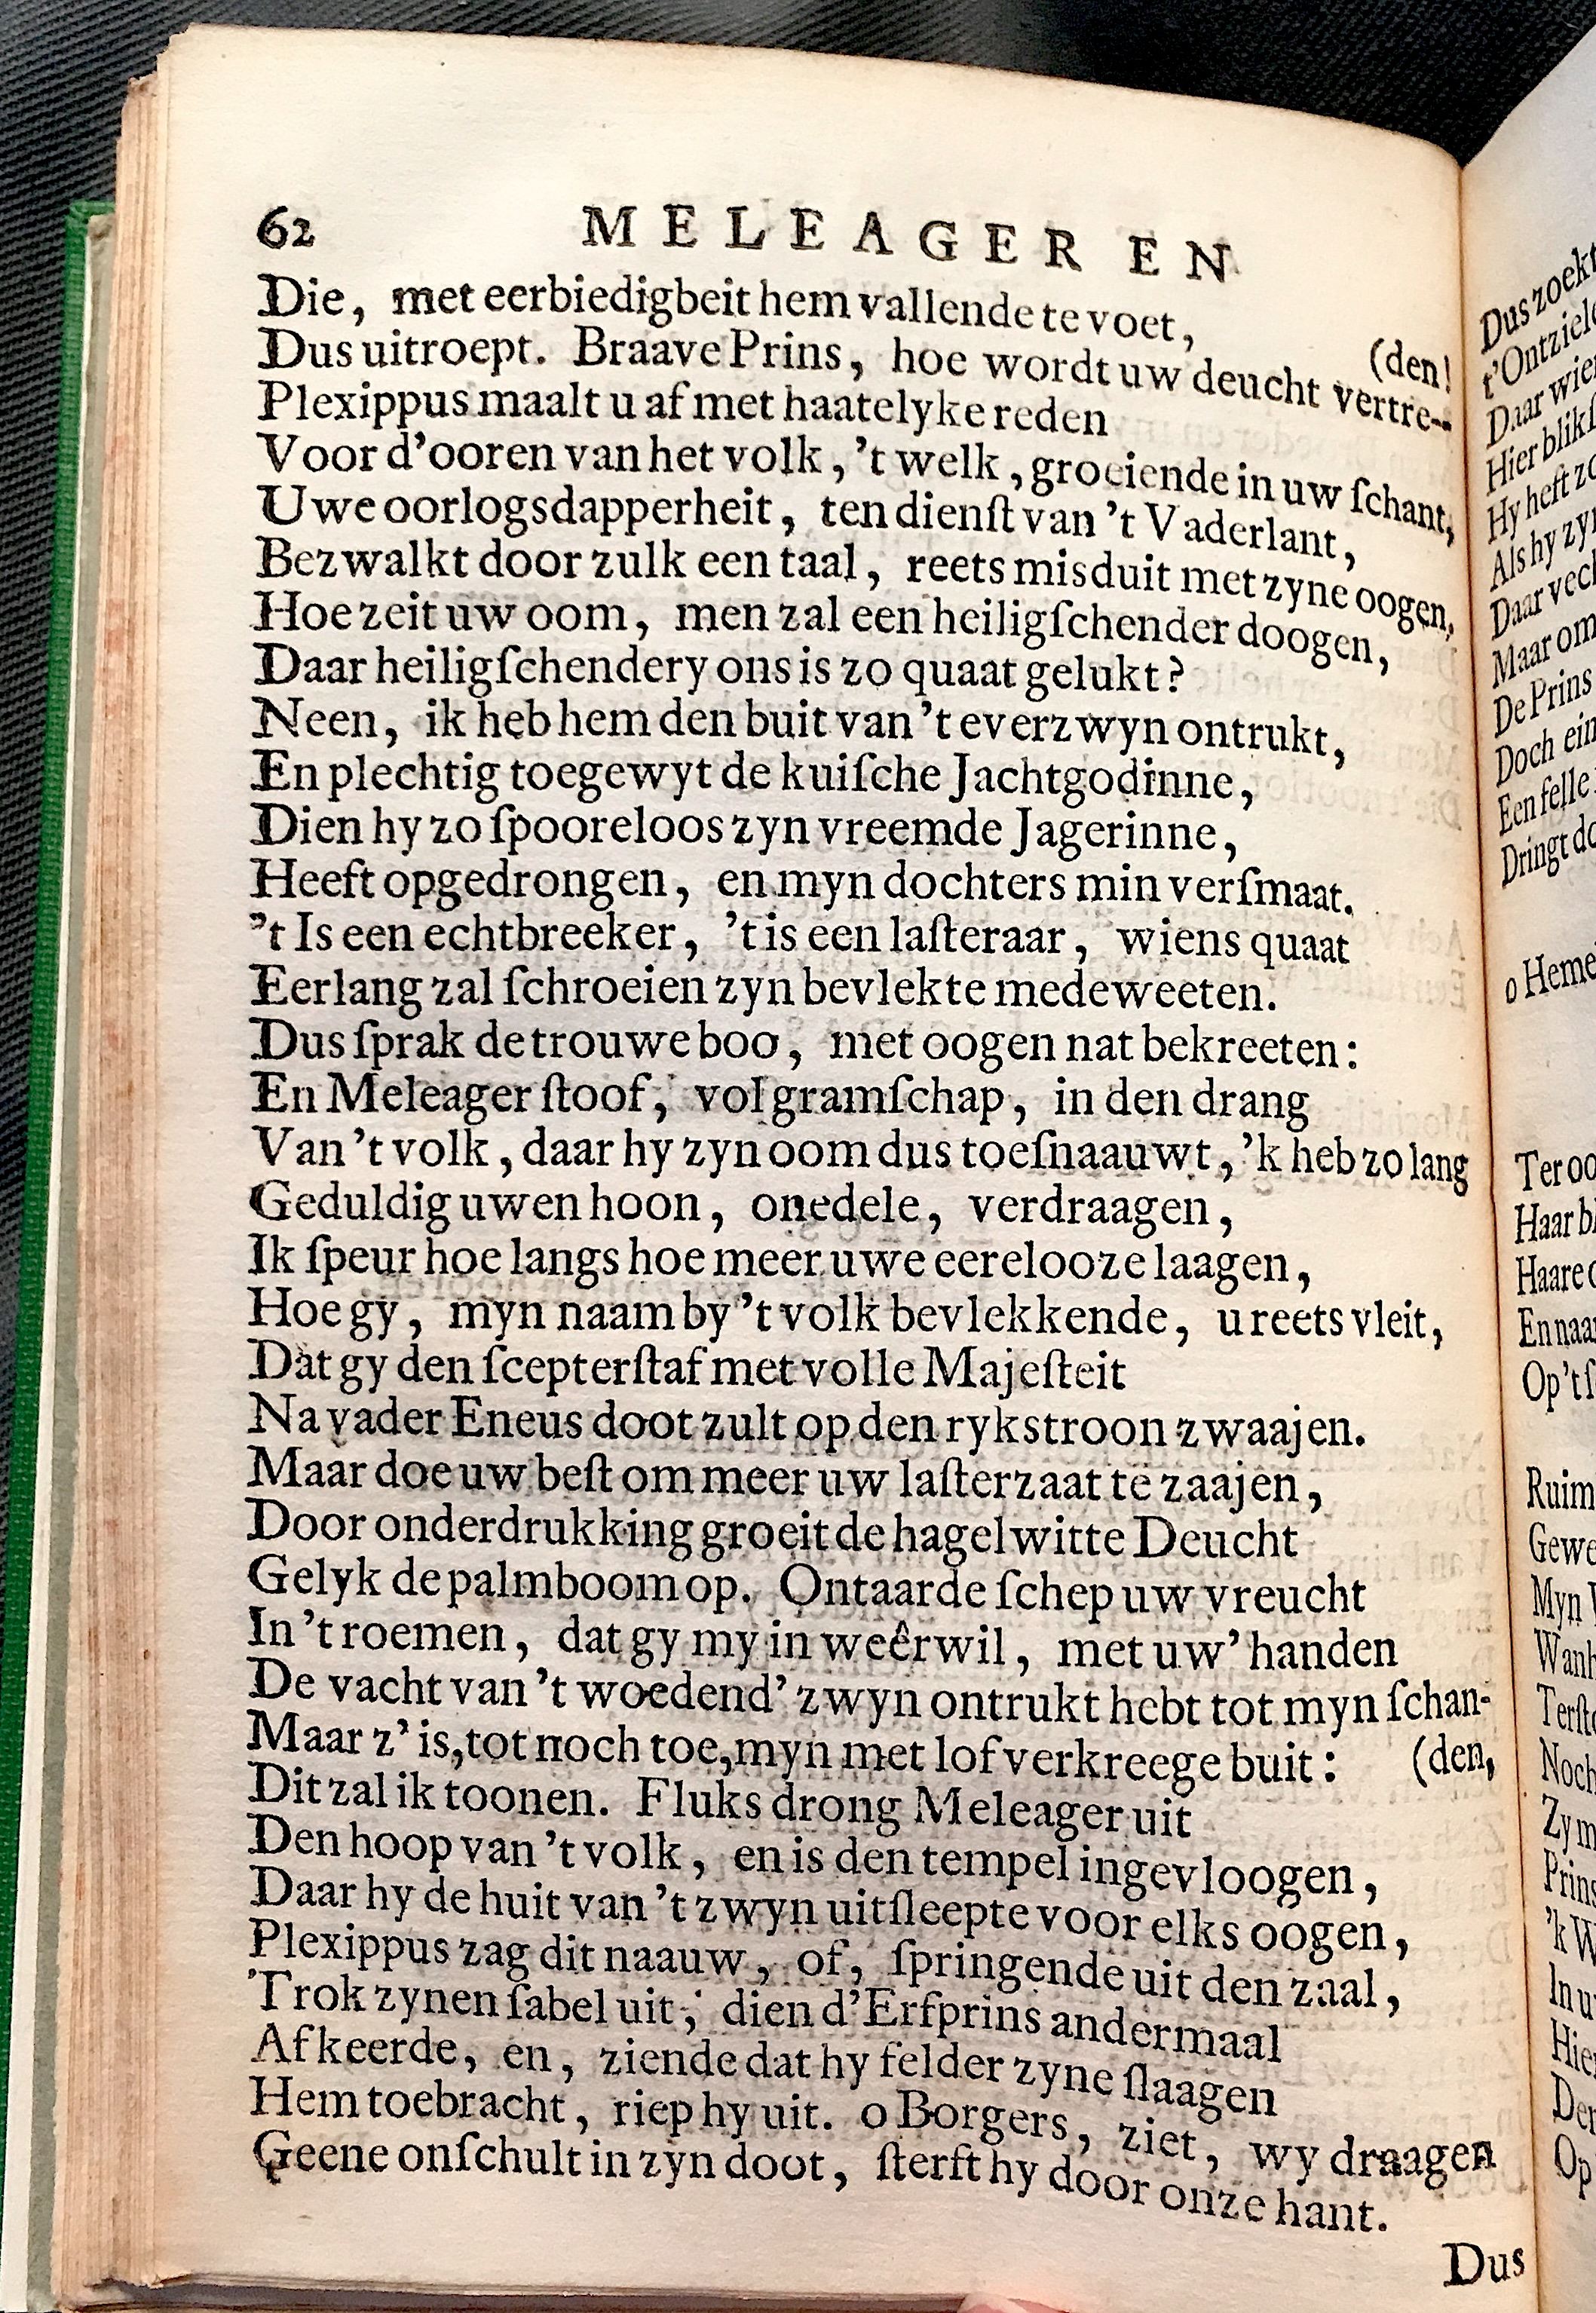 62 MELEAGER EN
Die, met eerbiedigbeit hem vallende te voet,
(den!
Dus uitroept. Braave Prins, hoe wordt uw deucht vertre-
Plexippus maalt u af met haatelyke reden
Voor d'ooren van het volk, 't welk, groeiende in uw ſchant,
Uwe oorlogsdapperheit, ten dienſt van 't Vaderlant,
Bezwalkt door zulk een taal, reets misduit met zyne oogen,
Hoe zeit uw oom, men zal een heiligſchender doogen,
Daar heiligſchendery ons is zo quaat gelukt?
Neen, ik heb hem den buit van 't everzwyn ontrukt,
En plechtig toegewyt de kuiſche Jachtgodinne,
Dien hy zo ſpooreloos zyn vreemde Jagerinne,
Heeft opgedrongen, en myn dochters min verſmaat.
't Is een echtbreeker, 't is een laſteraar, wiens quaat
Eerlang zal ſchroeien zyn bevlekte medeweeten.
Dus ſprak de trouwe boo, met oogen nat bekreeten:
En Meleager ſtoof, vol gramſchap, in den drang
Van 't volk, daar hy zyn oom dus toeſnaauwt, 'k heb zo lang
Geduldig uwen hoon, onedele, verdraagen,
Ik ſpeur hoe langs hoe meer uwe eerelooze laagen,
Hoe gy, myn naam by 't volk bevlekkende, u reets vleit,
Dat gy den ſcepterſtaf met volle Majeſteit
Na vader Eneus doot zult op den rykstroon zwaajen.
Maar doe uw beſt om meer uw laſterzaat te zaajen,
Door onderdrukking groeit de hagelwitte Deucht
Gelyk de palmboom op. Ontaarde ſchep uw vreucht
In 't roemen, dat gy my in weêrwil, met uw' handen
De vacht van 't woedend' zwyn ontrukt hebt tot myn ſchan-
Maar z' is, tot noch toe, myn met lof verkreege buit: (den,
Dit zal ik toonen. Fluks drong Meleager uit
Den hoop van 't volk, en is den tempel ingevloogen,
Daar hy de huit van 't zwyn uitſleepte voor elks oogen,
Plexippus zag dit naauw, of, ſpringende uit den zaal,
Trok zynen ſabel uit, dien d'Erfprins andermaal
Afkeerde, en, ziende dat hy felder zyne ſlaagen
Hem toebracht, riep hy uit. o Borgers, ziet, wy draagen
Geene onſchult in zyn doot, ſterft hy door onze hant.
Dus
Dus zoekt
t'Ontziel
Daar wie
Hier blik
Hy heft zo
Als hy zy
Daar vec
Maar om
De Prins
Doch ein
Een felle
Dringt do
o Heme
Ter oo
Haar bl
Haare
En naa
Op 't
Ruim
Gewe
Myn
Wanh
Terſt
Noch
Zy m
Prins
'k W
In u
Hier
Der
Op